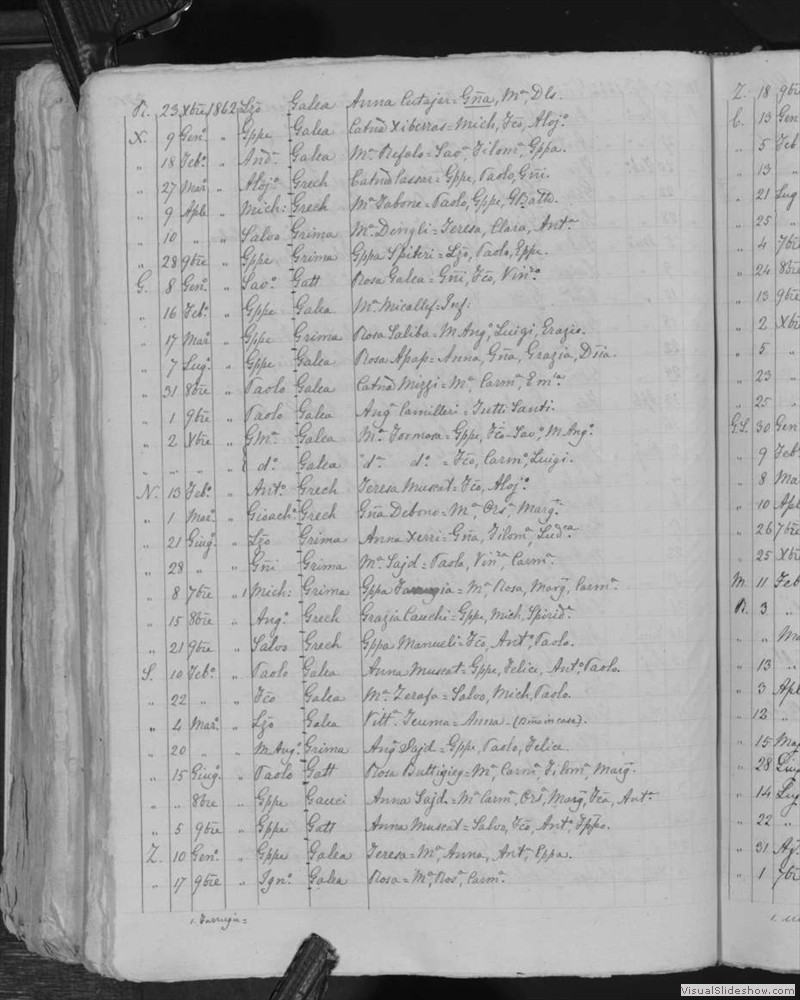 R. 23 Xbre 1862 Lzo Galea Anna Cutajar = Gña, Ma, Dls.
X. 9 Geno " Gppe Galea Catna Xiberras = Mich, Fco, Alojo.
" 18 Febo " Anda Galea Ma Refalo = Savo, Filoma, Gppa.
" 27 Maro " Alojo Grech Catna Cassar = Gppe, Paolo, Gñi.
" 9 Aple " Mich: Grech Ma Tabone = Paolo, Gppe, GBatta.
" 10 " " Salvo Grima Ma Dingli = Teresa, Clara, Anta.
" 28 9bre " Gppe Grima Gppa Spiteri = Lzo, Paolo, Gppe.
G. 8 Geno " Savo Gatt Rosa Galea = Gñi, Fco, Vinzo.
" 16 Febo " Gppe Galea Ma Micallef = Inf.
" 17 Maro " Gppe Grima Rosa Saliba = M. Ango, Luigi, Grazio.
" 7 Lugo " Gppe Galea Rosa Apap = Anna, Gña, Grazia,
" 31 8bre " Paolo Galea Catna Mizzi = Ma Carma,
" 1 9bre " Paolo Galea Anga Camilleri = Tutti Santi.
" 2 Xbre " Galea Ma Formosa = Gppe, Fco = Savo, M. Ango.
" " " " do. Galea da do = Fco, Carmo, Luigi.
N. 13 Febo " Anto Grech Teresa Muscat = Fco, Alojo.
" 1 Maro " Gioacho Grech Gña Debono = Ma Orsa Marga.
" 21 Giugo " Lzo Grima Anna Xerri = Gña, Filoma, Ludca.
" 28 " " Gñi Grima Ma Sajd = Paola, Vinza, Carma.
" 8 7bre 1 Mich: Grima Gppa = Ma, Rosa, Marga, Carma.
" 15 8bre " Ango Grech Grazia Cauchi = Gppe, Mich, Spirida.
" 21 9bre " Salvo Grech Gppa Manueli = Fco, Anto, Paolo.
S. 10 Febo " Paolo Galea Anna Muscat = Gppe, Felice, Anto, Paolo.
" 22 " " Fco Galea Ma Zerafa = Salvo, Mich, Paolo.
" 4 Maro " Lzo Galea Vitta Teuma = Anna.
" 20 " " M. Ango Grima Anga Sajd = Gppe, Paolo, Felice.
" 15 Giugo " Paolo Gatt Rosa Buttigieg = Ma, Carma, Filoma, Marga.
" " 8bre " Gppe Gauci Anna Sajd = Ma Carma, Orsa, Marga, Fca, Anta.
" 5 9bre " Gppe Gatt Anna Muscat = Salvo, Fco, Anto,
Z. 10 Geno " Gppe Galea Teresa = Ma, Anna, Anta, Gppa.
" 17 9bre " Igno Galea Rosa = Ma, Rosa, Carma.
1. Farrugia =
Z. 18 9bre
C. 13 Gen
" 5 Feb
" 13 "
" 21 Lug
" 25 "
" 4 7bre
" 24 8bre
" 13 9bre
" 2 Xbre
" 5 "
" 23 "
" 25 "
G.S. 30 Gen
" 9 Feb
" 8 Ma
" 10 Apl
" 26 7bre
" 25 Xb
M. 11 Feb
R. 3 "
" " Ma
" 13 "
" 3 Apl
" 12 "
" 15 Mag
" 28 Giu
" 14 Lug
" 22 "
" 31 Ag
" 1 7bre
VisualSlideshow.com